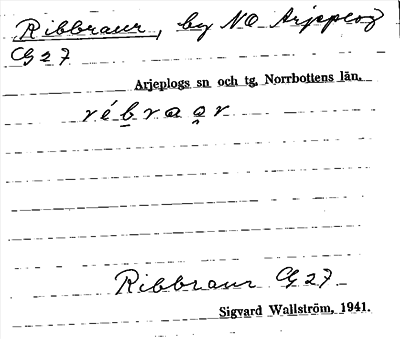 Ribbraur, by NO Arjeplog
CG 27
Arjeplogs sn och tg, Norrbottens län.
r é b r a a̭ r
Ribbraur CG 27
Sigvard Wallström, 1941.